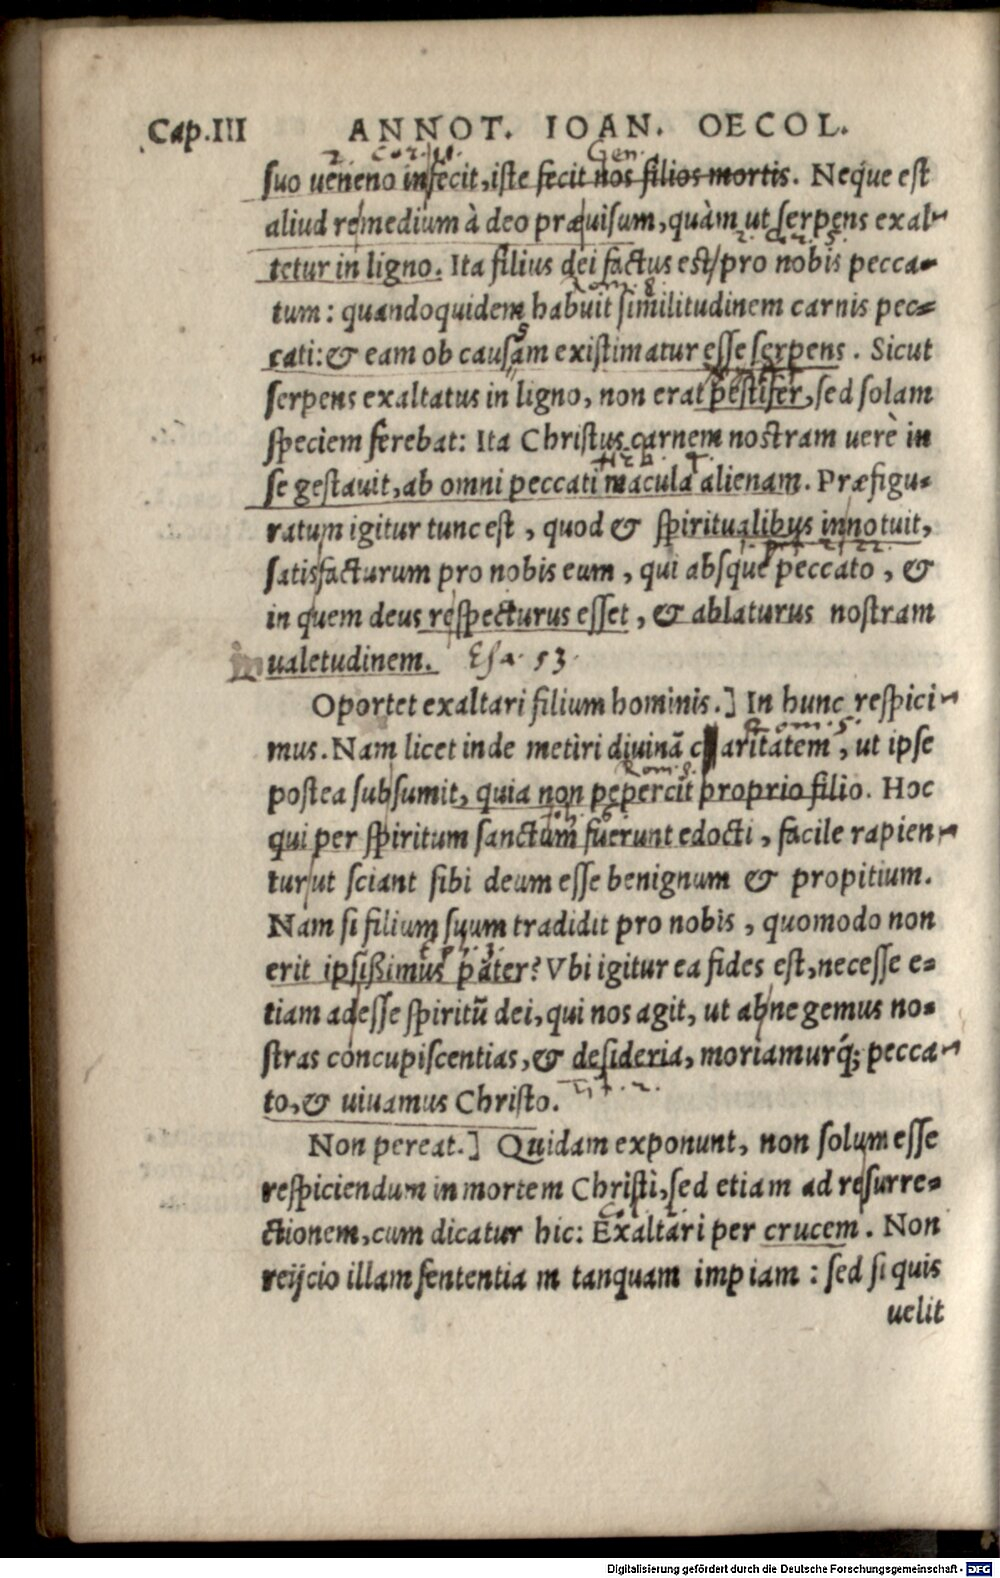 Cap.III ANNOT. IOAN. OECOL.
2. Cor. 11. Gen.
suo ueneno infecit, iste fecit nos filios mortis. Neque est
aliud remedium à deo præuisum, quàm ut serpens exal-
2. Cor. 5.
tetur in ligno. Ita filius dei factus est pro nobis pecca-
Rom. 8.
tum: quandoquidem habuit similitudinem carnis pec-
cati: & eam ob causam existimatur esse serpens. Sicut
serpens exaltatus in ligno, non erat pestifer, sed solam
speciem ferebat: Ita Christus carnem nostram uerè in
Heb. 7.
se gestauit, ab omni peccati macula alienam. Præfigu-
ratum igitur tunc est, quod & spiritualibus innotuit,
satisfacturum pro nobis eum, qui absque peccato, &
in quem deus respecturus esset, & ablaturus nostram
in ualetudinem. Esa. 53.
Oportet exaltari filium hominis.] In hunc respici-
Rom. 5.
mus. Nam licet inde metiri diuinã caritatem, ut ipse
Rom. 8.
postea subsumit, quia non pepercit proprio filio. Hoc
qui per spiritum sanctum fuerunt edocti, facile rapien-
tur ut sciant sibi deum esse benignum & propitium.
Nam si filium suum tradidit pro nobis, quomodo non
erit ipsißimus pater? Vbi igitur ea fides est, necesse e-
tiam adesse spiritũ dei, qui nos agit, ut abnegemus no-
stras concupiscentias, & desideria, moriamurq́; pecca-
to, & uiuamus Christo. Tit. 2.
Non pereat.] Quidam exponunt, non solum esse
respiciendum in mortem Christi, sed etiam ad resurre-
ctionem, cum dicatur hic: Exaltari per crucem. Non
reijcio illam sententiam tanquam impiam: sed si quis
uelit
Digitalisierung gefördert durch die Deutsche Forschungsgemeinschaft - DFG